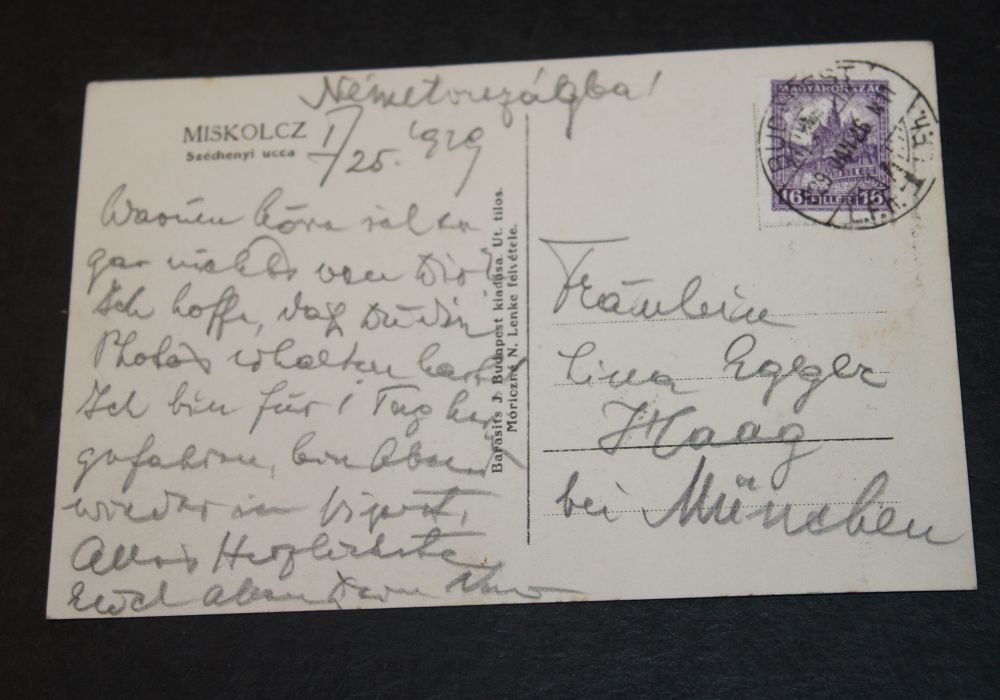 Németországba!
MISKOLCZ
Széchenyi ucca
I/25. 1929
Warum höre ich
gar nichts von Dir?
Ich hoffe, daß Du die
Photos erhalten hast.
Ich bin für 1 Tag her
gefahren, bin Abend
wieder in
Alles Herzlichste
Euch allen Dein
Barasits J. Budapest kiadása. Ut. tilos.
Móriczné N. Lenke felvétele.
MAGYARORSZÁG
16 FILLÉR 16
BUDAPEST
Fräulein
Lina Egeger
Haag
bei München